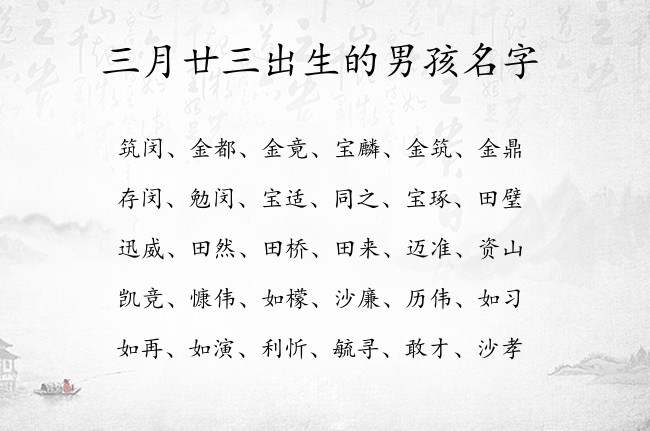 三月廿三出生的男孩名字
筑闵、金都、金竟、宝麟、金筑、金鼎
存闵、勉闵、宝适、同之、宝琢、田璧
迅威、田然、田桥、田来、迈准、资山
凯竞、慷伟、如檬、沙廉、历伟、如习
如再、如演、利忻、毓寻、敢才、沙孝